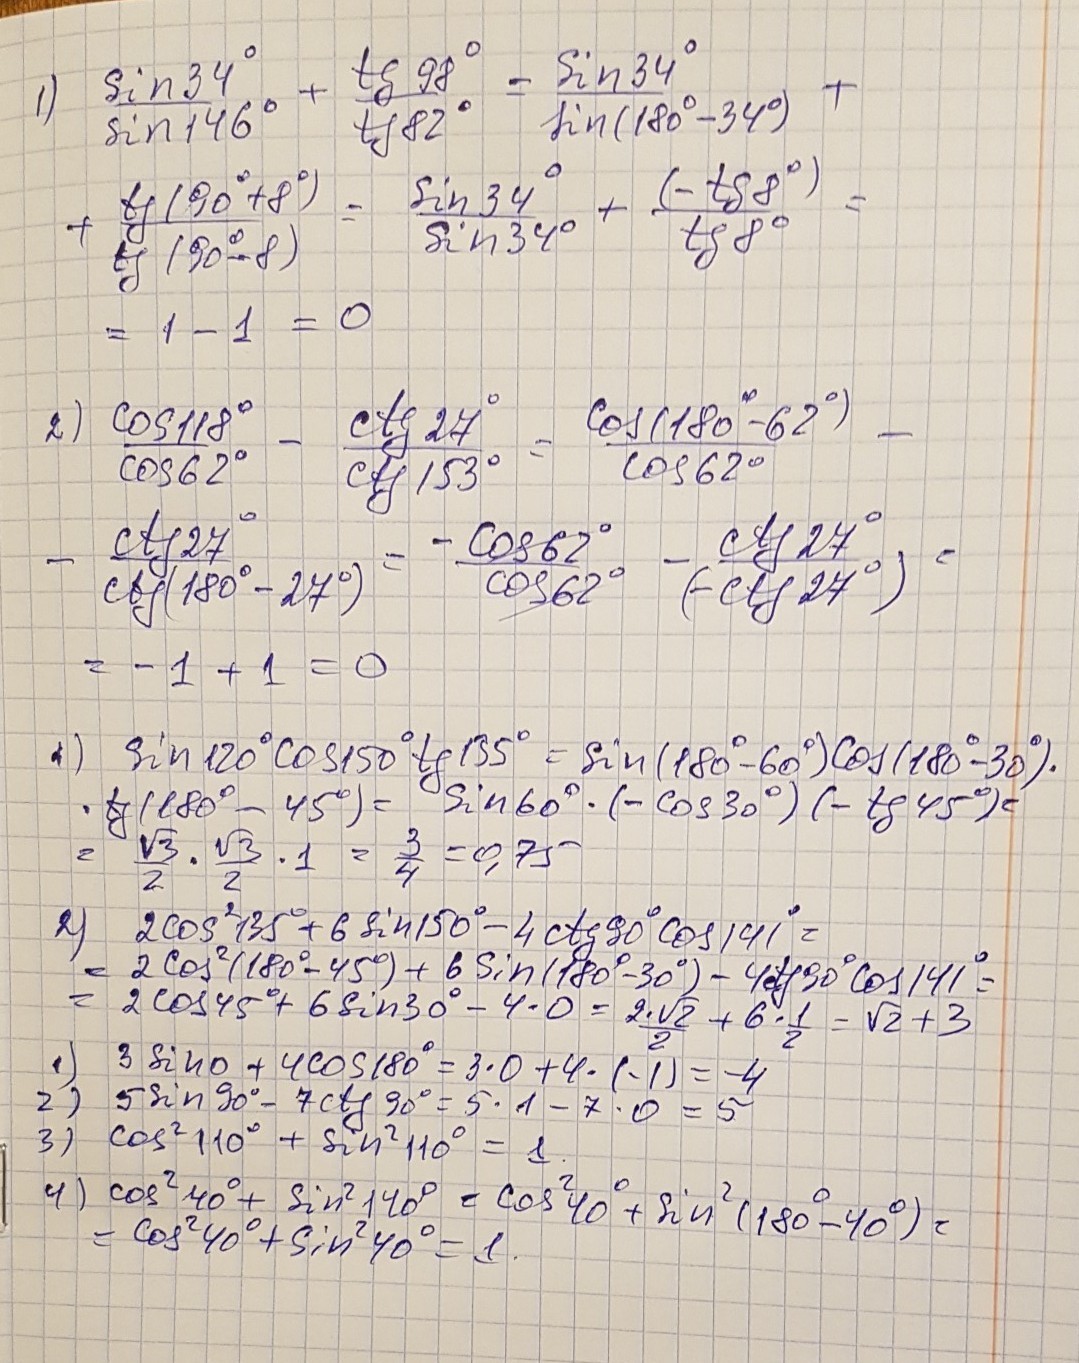 1) sin34°/sin146° + tg98°/tg82° = sin34°/sin(180°-34°) +
+ tg(90°+8°)/tg(90°-8) = sin34°/sin34° + (-tg8°)/tg8° =
= 1 - 1 = 0
2) cos118°/cos62° - ctg27°/ctg153° = cos(180°-62°)/cos62° -
- ctg27°/ctg(180°-27°) = -cos62°/cos62° - ctg27°/(-ctg27°) =
= -1 + 1 = 0
1) sin120°cos150°tg135° = sin(180°-60°)cos(180°-30°)·
·tg(180°-45°) = sin60°·(-cos30°)(-tg45°) =
= √3/2 · √3/2 · 1 = 3/4 = 0,75
2) 2cos²135° + 6sin150° - 4ctg90°cos141° =
= 2cos²(180°-45°) + 6sin(180°-30°) - 4ctg90°cos141° =
= 2cos45° + 6sin30° - 4·0 = 2·√2/2 + 6·1/2 = √2 + 3
1) 3sin0 + 4cos180° = 3·0 + 4·(-1) = -4
2) 5sin90° - 7ctg90° = 5·1 - 7·0 = 5
3) cos²110° + sin²110° = 1.
4) cos²40° + sin²140° = cos²40° + sin²(180°-40°) =
= cos²40° + sin²40° = 1.